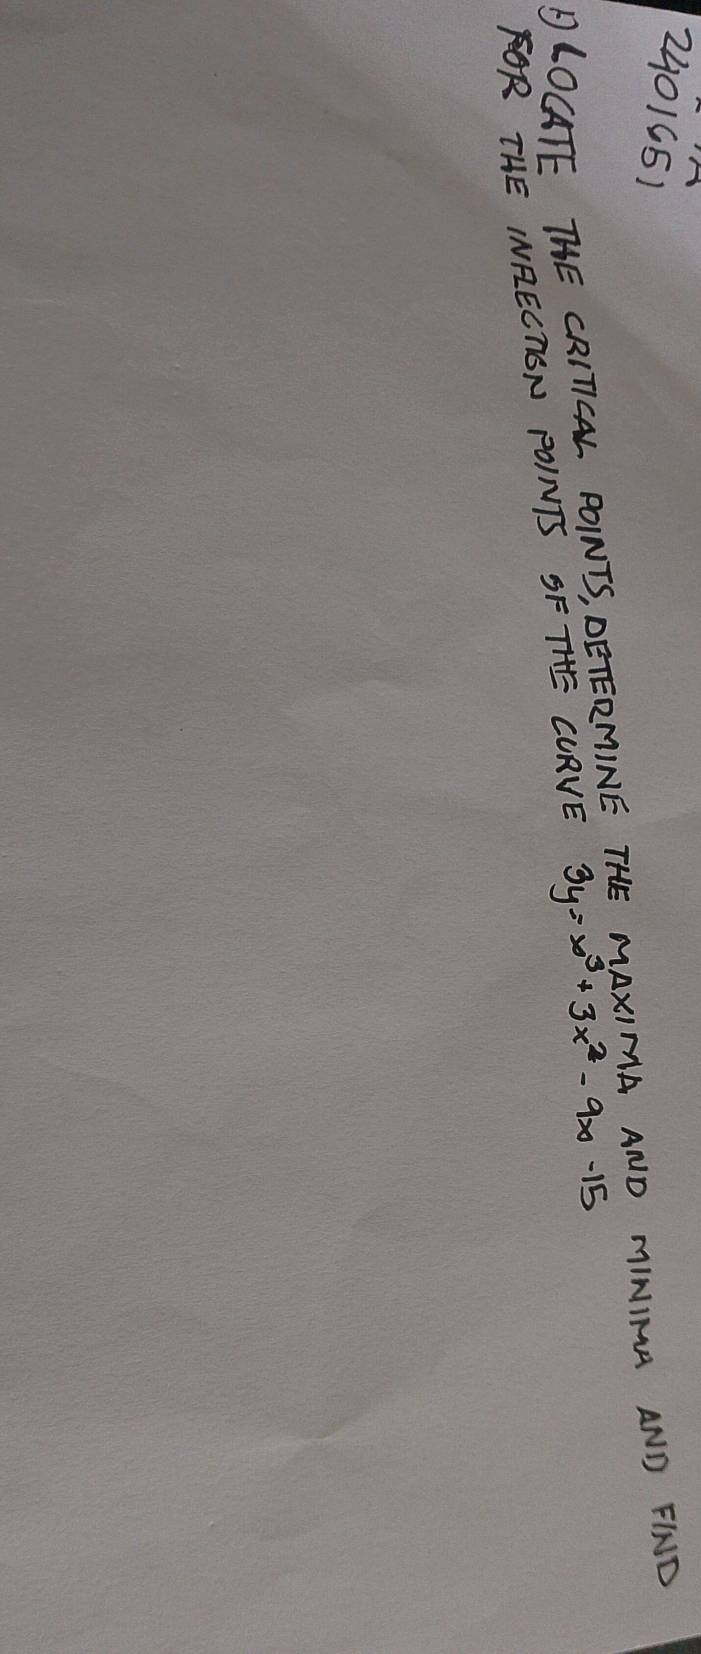 2401651
1) LOCATE THE CRITICAL POINTS, DETERMINE THE MAXIMA AND MINIMA AND FIND
FOR THE INFLECTION POINTS OF THE CURVE 3y = x³ + 3x² - 9x - 15